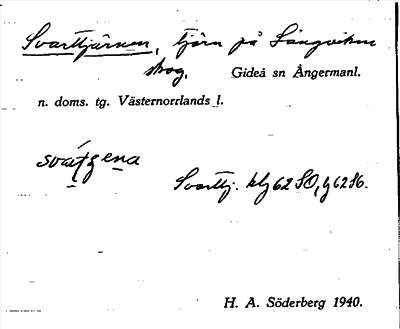 Svarttjärnen, tjärn på Långviken
skog. Gideå sn Ångermanl.
n. doms. tg. Västernorrlands l.
svat́gena
Svarttj. klg 62 SO, g 6286.
H. A. Söderberg 1940.